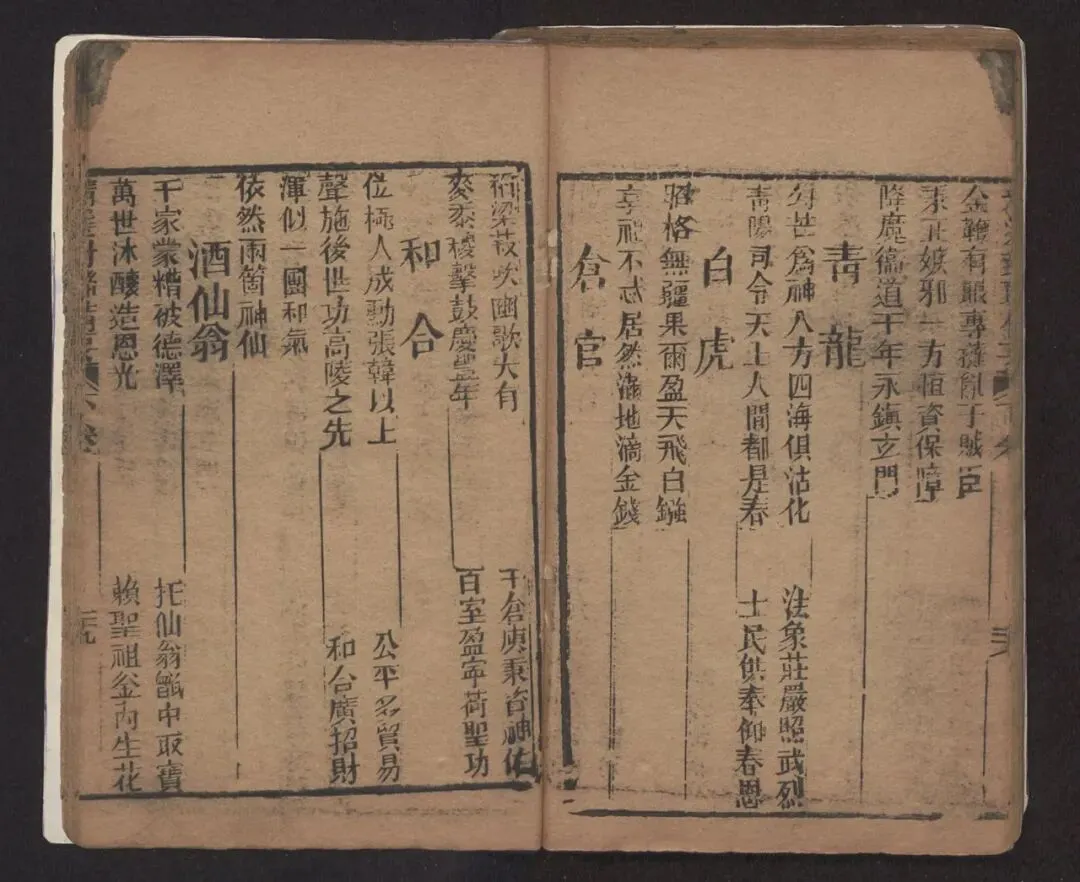 金鞭有眼專亂子賊臣
秉正嫉邪一方恒資保障
降魔衛道千年永鎮玄門
青龍
勾芒爲神八方四海俱沾化 法象莊嚴照武烈
青陽司令天上人間都是春 士民供奉仰春恩
白虎
昭格無疆果爾盈天飛白鏹
享祀不忒居然滿地滴金錢
倉官
稻粱菽吹豳歌大有 千倉庾秉咨神佑
麥黍稷擊鼓慶豐年 百室盈寧荷聖功
和合
位極人成勳張韓以上 公平多貿易
聲施後世功高陵之先 和合廣招財
渾似一團和氣
依然兩箇神仙
酒仙翁
千家蒙糟被德澤 托仙翁甑中取寶
萬世沐釀造恩光 賴聖祖釜內生花